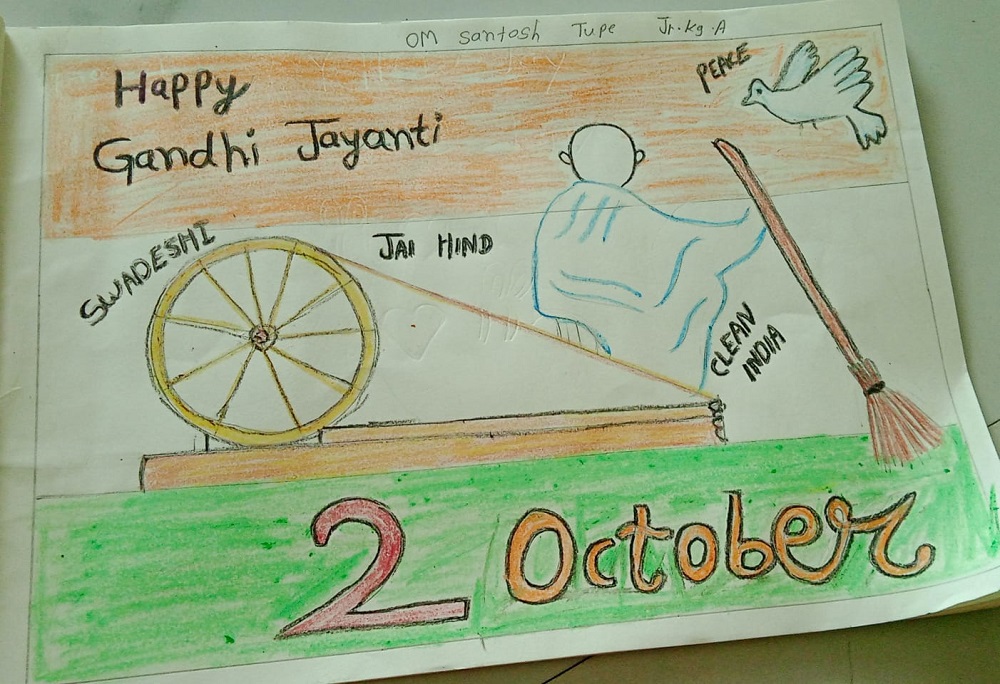 OM Santosh Tupe Jr.kg.A
Happy
Gandhi Jayanti
PEACE
SWADESHI
JAI HIND
CLEAN
INDIA
2 October